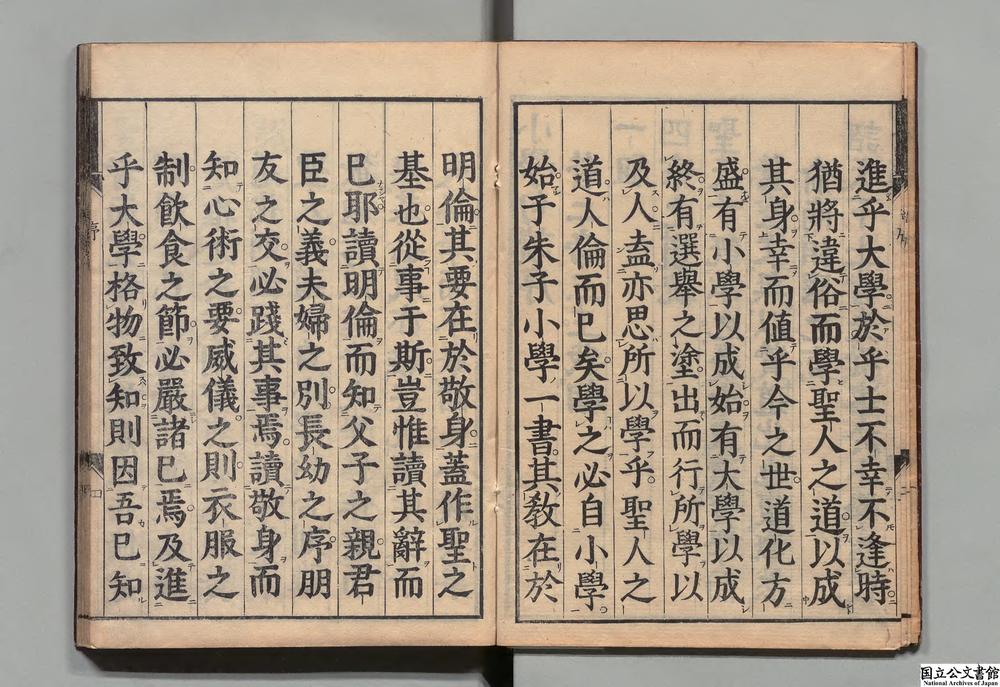 進乎大學於乎士不幸不逢時
猶將違俗而學聖人之道以成
其身幸而値乎今之世道化方
盛有小學以成始有大學以成
終有選舉之塗出而行所學以
及人盍亦思所以學乎聖人之
道人倫而已矣學之必自小學
始子朱子小學一書其教在於
明倫其要在於敬身蓋作聖之
基也從事于斯豈惟讀其辭而
已耶讀明倫而知父子之親君
臣之義夫婦之別長幼之序朋
友之交必踐其事焉讀敬身而
知心術之要威儀之則衣服之
制飲食之節必嚴諸已焉及進
乎大學格物致知則因吾已知
序
四
国立公文書館
National Archives of Japan